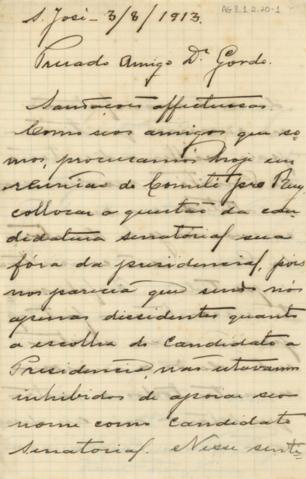 AG3.1.2.20-1
S. José - 3/8/1913.
Presado Amigo Dr. Gordo.
Saudações affectuosas.
Como seos amigos que so-
mos, procuramos hoje em
reunião do Comité pro Ruy
collocar a questão da can-
didatura senatorial sua
fóra da presidencial, pois
nos parecia que sendo nós
apenas dissidentes quanto
a escolha do candidato a
Presidencia, não estavamos
inhibidos de apoiar seo
nome como candidato
senatorial. Nesse senti-